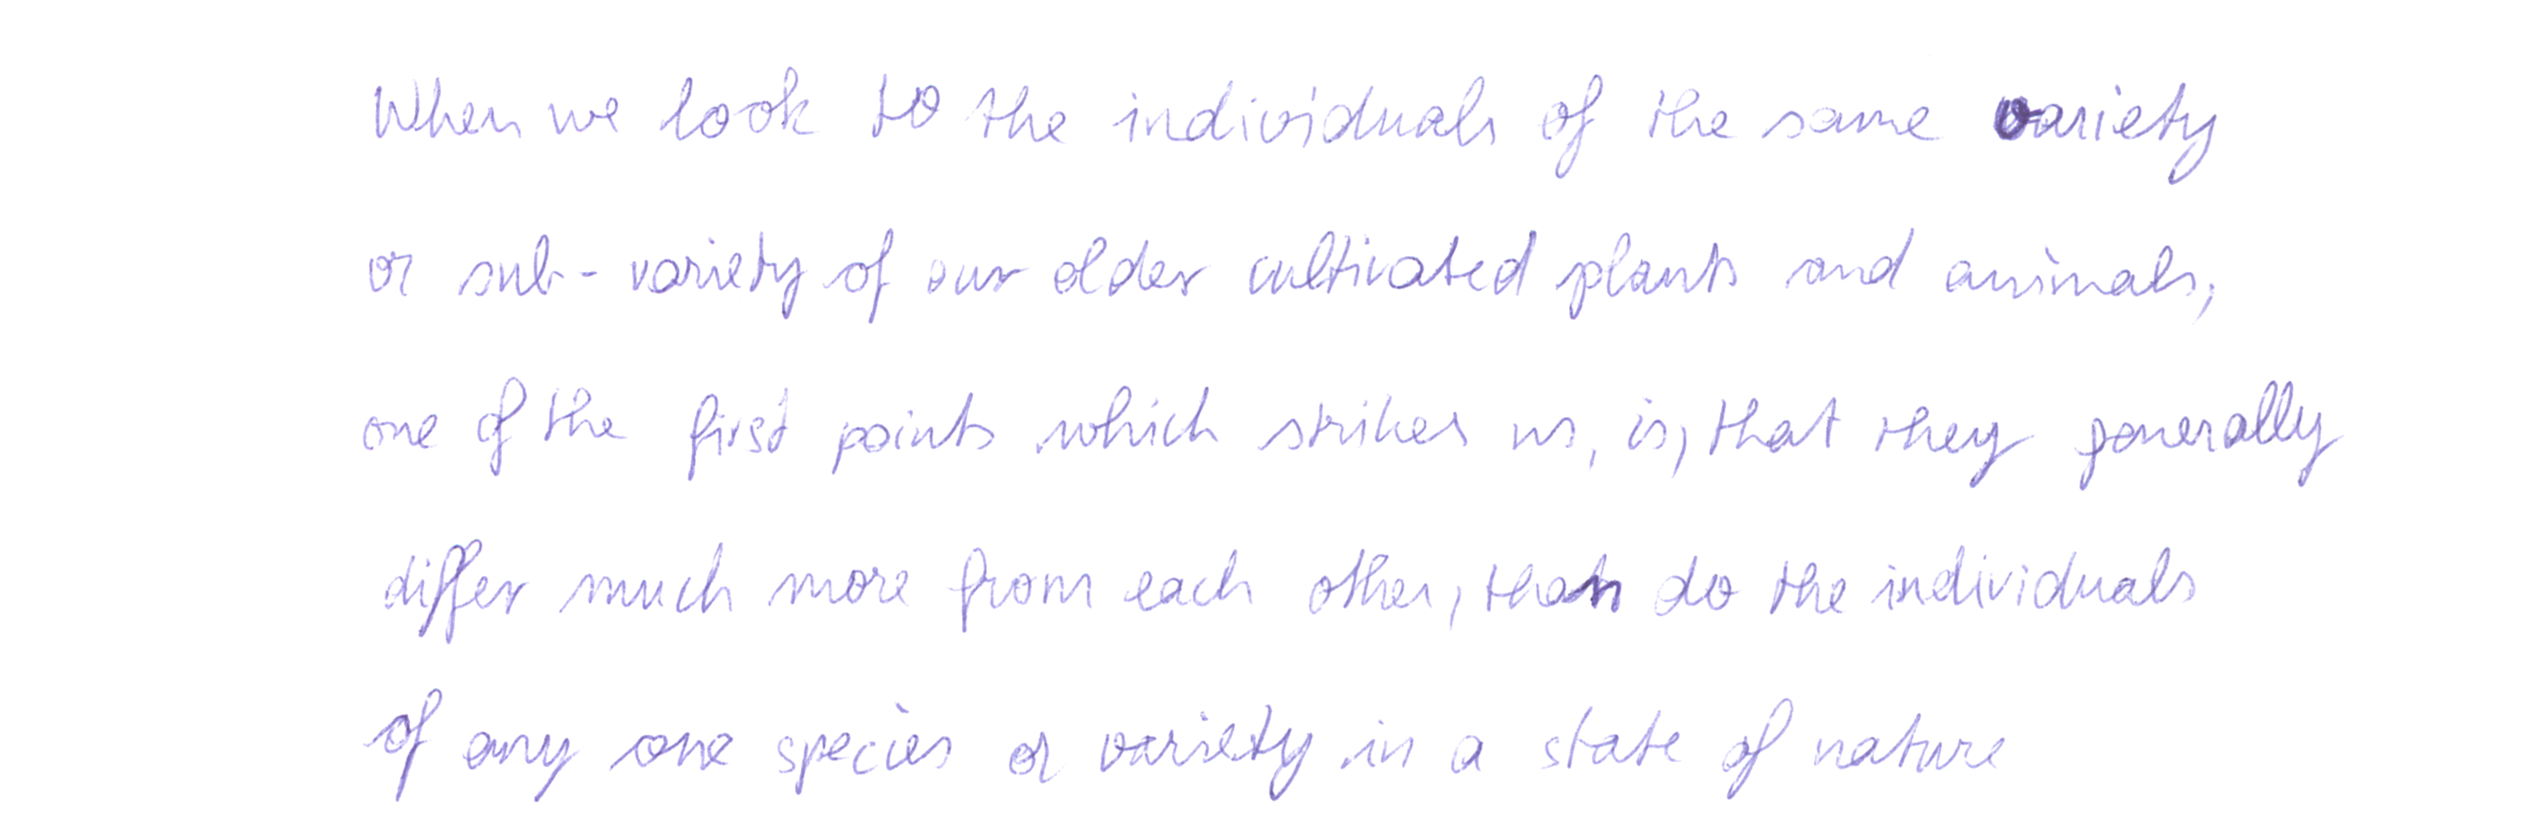 When we look to the individuals of the same variety
or sub-variety of our older cultivated plants and animals,
one of the first points which strikes us, is, that they generally
differ much more from each other, than do the individuals
of any one species or variety in a state of nature